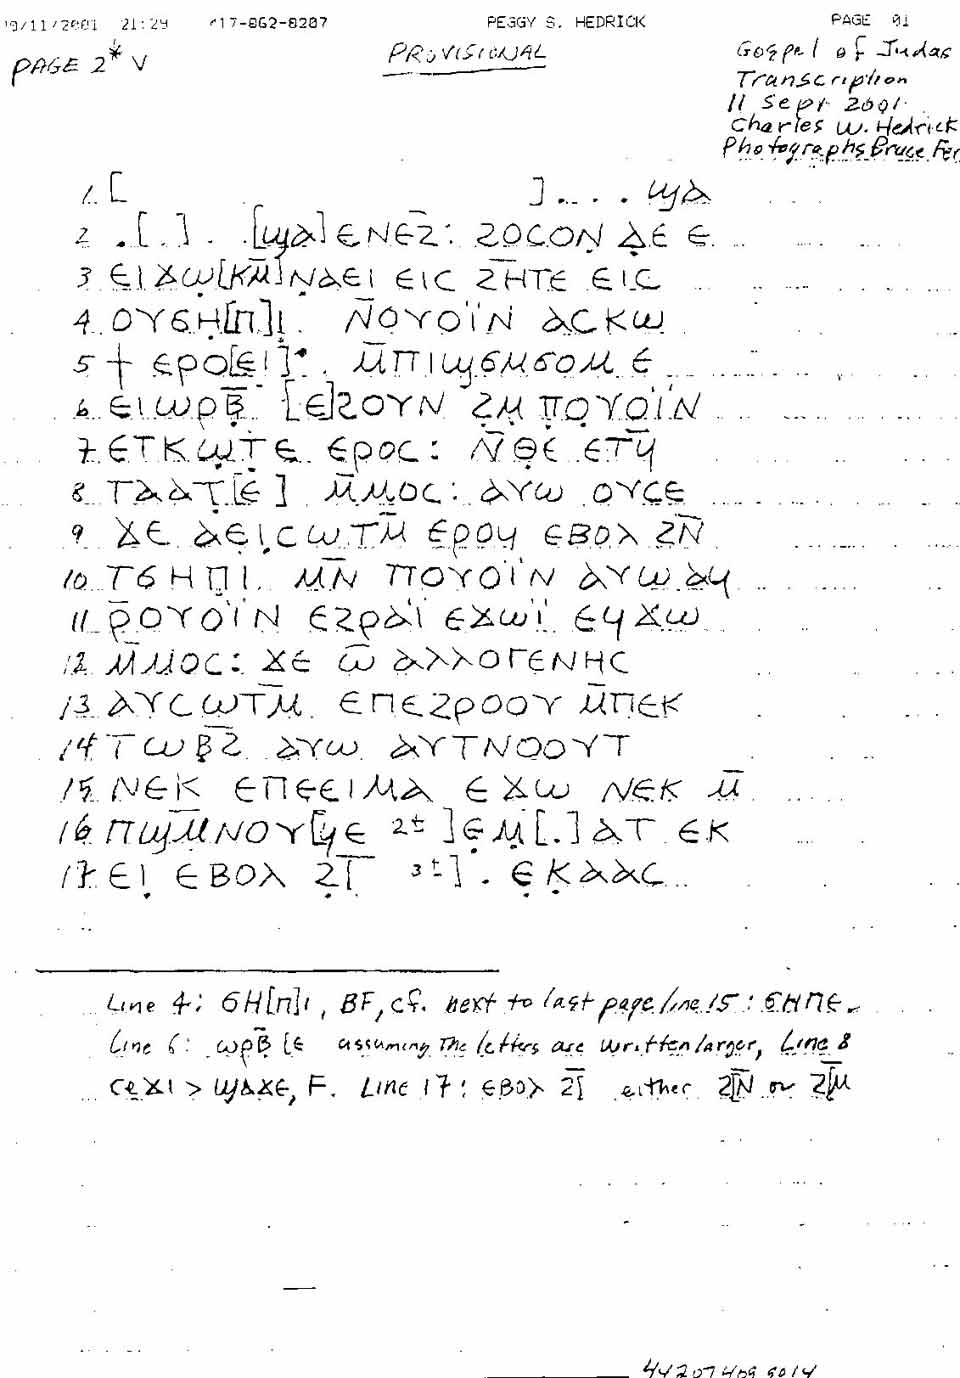 09/11/2001 21:29 417-862-8207 PEGGY S. HEDRICK PAGE 01
PAGE 2* V
PROVISIONAL
Gospel of Judas
Transcription
11 Sept 2001
Charles W. Hedrick
Photographs Bruce Fer
1. [ ] . . . . ϣⲁ
2 . [ . ] . . [ϣⲁ]ⲉⲛⲉϩ̄: ϩⲟⲥⲟⲛ ⲇ̣ⲉ ⲉ
3 ⲉⲓϫⲱ[ⲕⲙ̄]ⲛ̣ⲁⲉⲓ ⲉⲓⲥ ϩⲏ̄ⲧⲉ ⲉⲓⲥ
4. ⲟⲩϭⲏ[ⲡ]ⲓ̣. ⲛ̄ⲟⲩⲟⲓ̈ⲛ ⲁⲥⲕⲱ
5 ϯ ⲉⲣⲟ[ⲉⲓ]·. ⲙ̄ⲡⲓϣϭⲙϭⲟⲙ ⲉ
6 ⲉⲓⲱⲣⲃ̄ [ⲉ]ϩⲟⲩⲛ ϩ̣ⲙ̣̄ ⲡ̣ⲟ̣ⲩⲟ̣ⲓ̈ⲛ
7 ⲉⲧⲕⲱ̣ⲧ̣ⲉ̣ ⲉⲣⲟⲥ: ⲛ̄ⲑ̣ⲉ ⲉⲧϥ̄
8 ⲧⲁⲁⲧ̣[ⲉ] ⲙ̄ⲙⲟⲥ: ⲁⲩⲱ ⲟⲩⲥⲉ
9 ϫⲉ ⲁⲉⲓ̣ⲥⲱⲧⲙ̄ ⲉⲣⲟϥ ⲉⲃⲟⲗ ϩⲛ̄
10 ⲧϭⲏⲡⲓ. ⲙⲛ̄ ⲡⲟⲩⲟⲓ̈ⲛ ⲁⲩⲱ ⲁϥ
11 ⲣ̄ⲟⲩⲟⲓ̈ⲛ ⲉϩⲣⲁⲓ̈ ⲉϫⲱⲓ̈ ⲉϥϫⲱ
12 ⲙ̄ⲙⲟⲥ: ϫⲉ ⲱ̄ ⲁⲗⲗⲟⲅⲉⲛⲏⲥ
13 ⲁⲩⲥⲱⲧⲙ̄ ⲉⲡⲉϩⲣⲟⲟⲩ ⲙ̄ⲡⲉⲕ
14 ⲧⲱⲃ̣ϩ̄ ⲁⲩⲱ ⲁⲩⲧⲛⲟⲟⲩⲧ
15 ⲛⲉⲕ ⲉⲡⲉⲉⲓⲙⲁ ⲉϫⲱ ⲛⲉⲕ ⲙ̄
16 ⲡϣⲙ̄ⲛⲟⲩ[ϥⲉ 2± ]ⲉ̣ⲙ̣[.]ⲁⲧ ⲉⲕ
17 ⲉⲓ̣ ⲉⲃⲟⲗ ϩ̣[̄ 3±] . ⲉ̣ⲕ̣ⲁⲁⲥ
Line 4: ϭⲏ[ⲡ]ⲓ, BF, cf. next to last page line 15: ϭⲏⲡⲉ.
Line 6: ⲱⲣⲃ̄ [ⲉ assuming the letters are written larger, Line 8
ⲥⲉϫⲓ > ϣⲁϫⲉ, F. Line 17: ⲉⲃⲟⲗ ϩ[̄ either ϩ[ⲛ̄ or ϩ[ⲙ̄